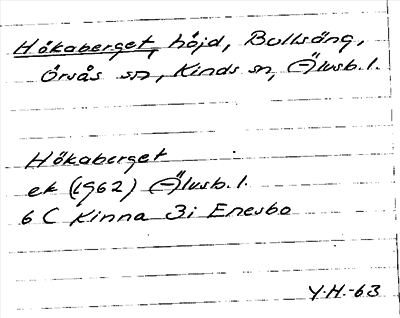 Hökaberget, höjd, Bullsäng,
Örsås sn, Kinds sn, Älvsb. l.
Hökaberget
ek (1962) Älvsb. l.
6 C Kinna 3i Enesbo
Y.H.-63